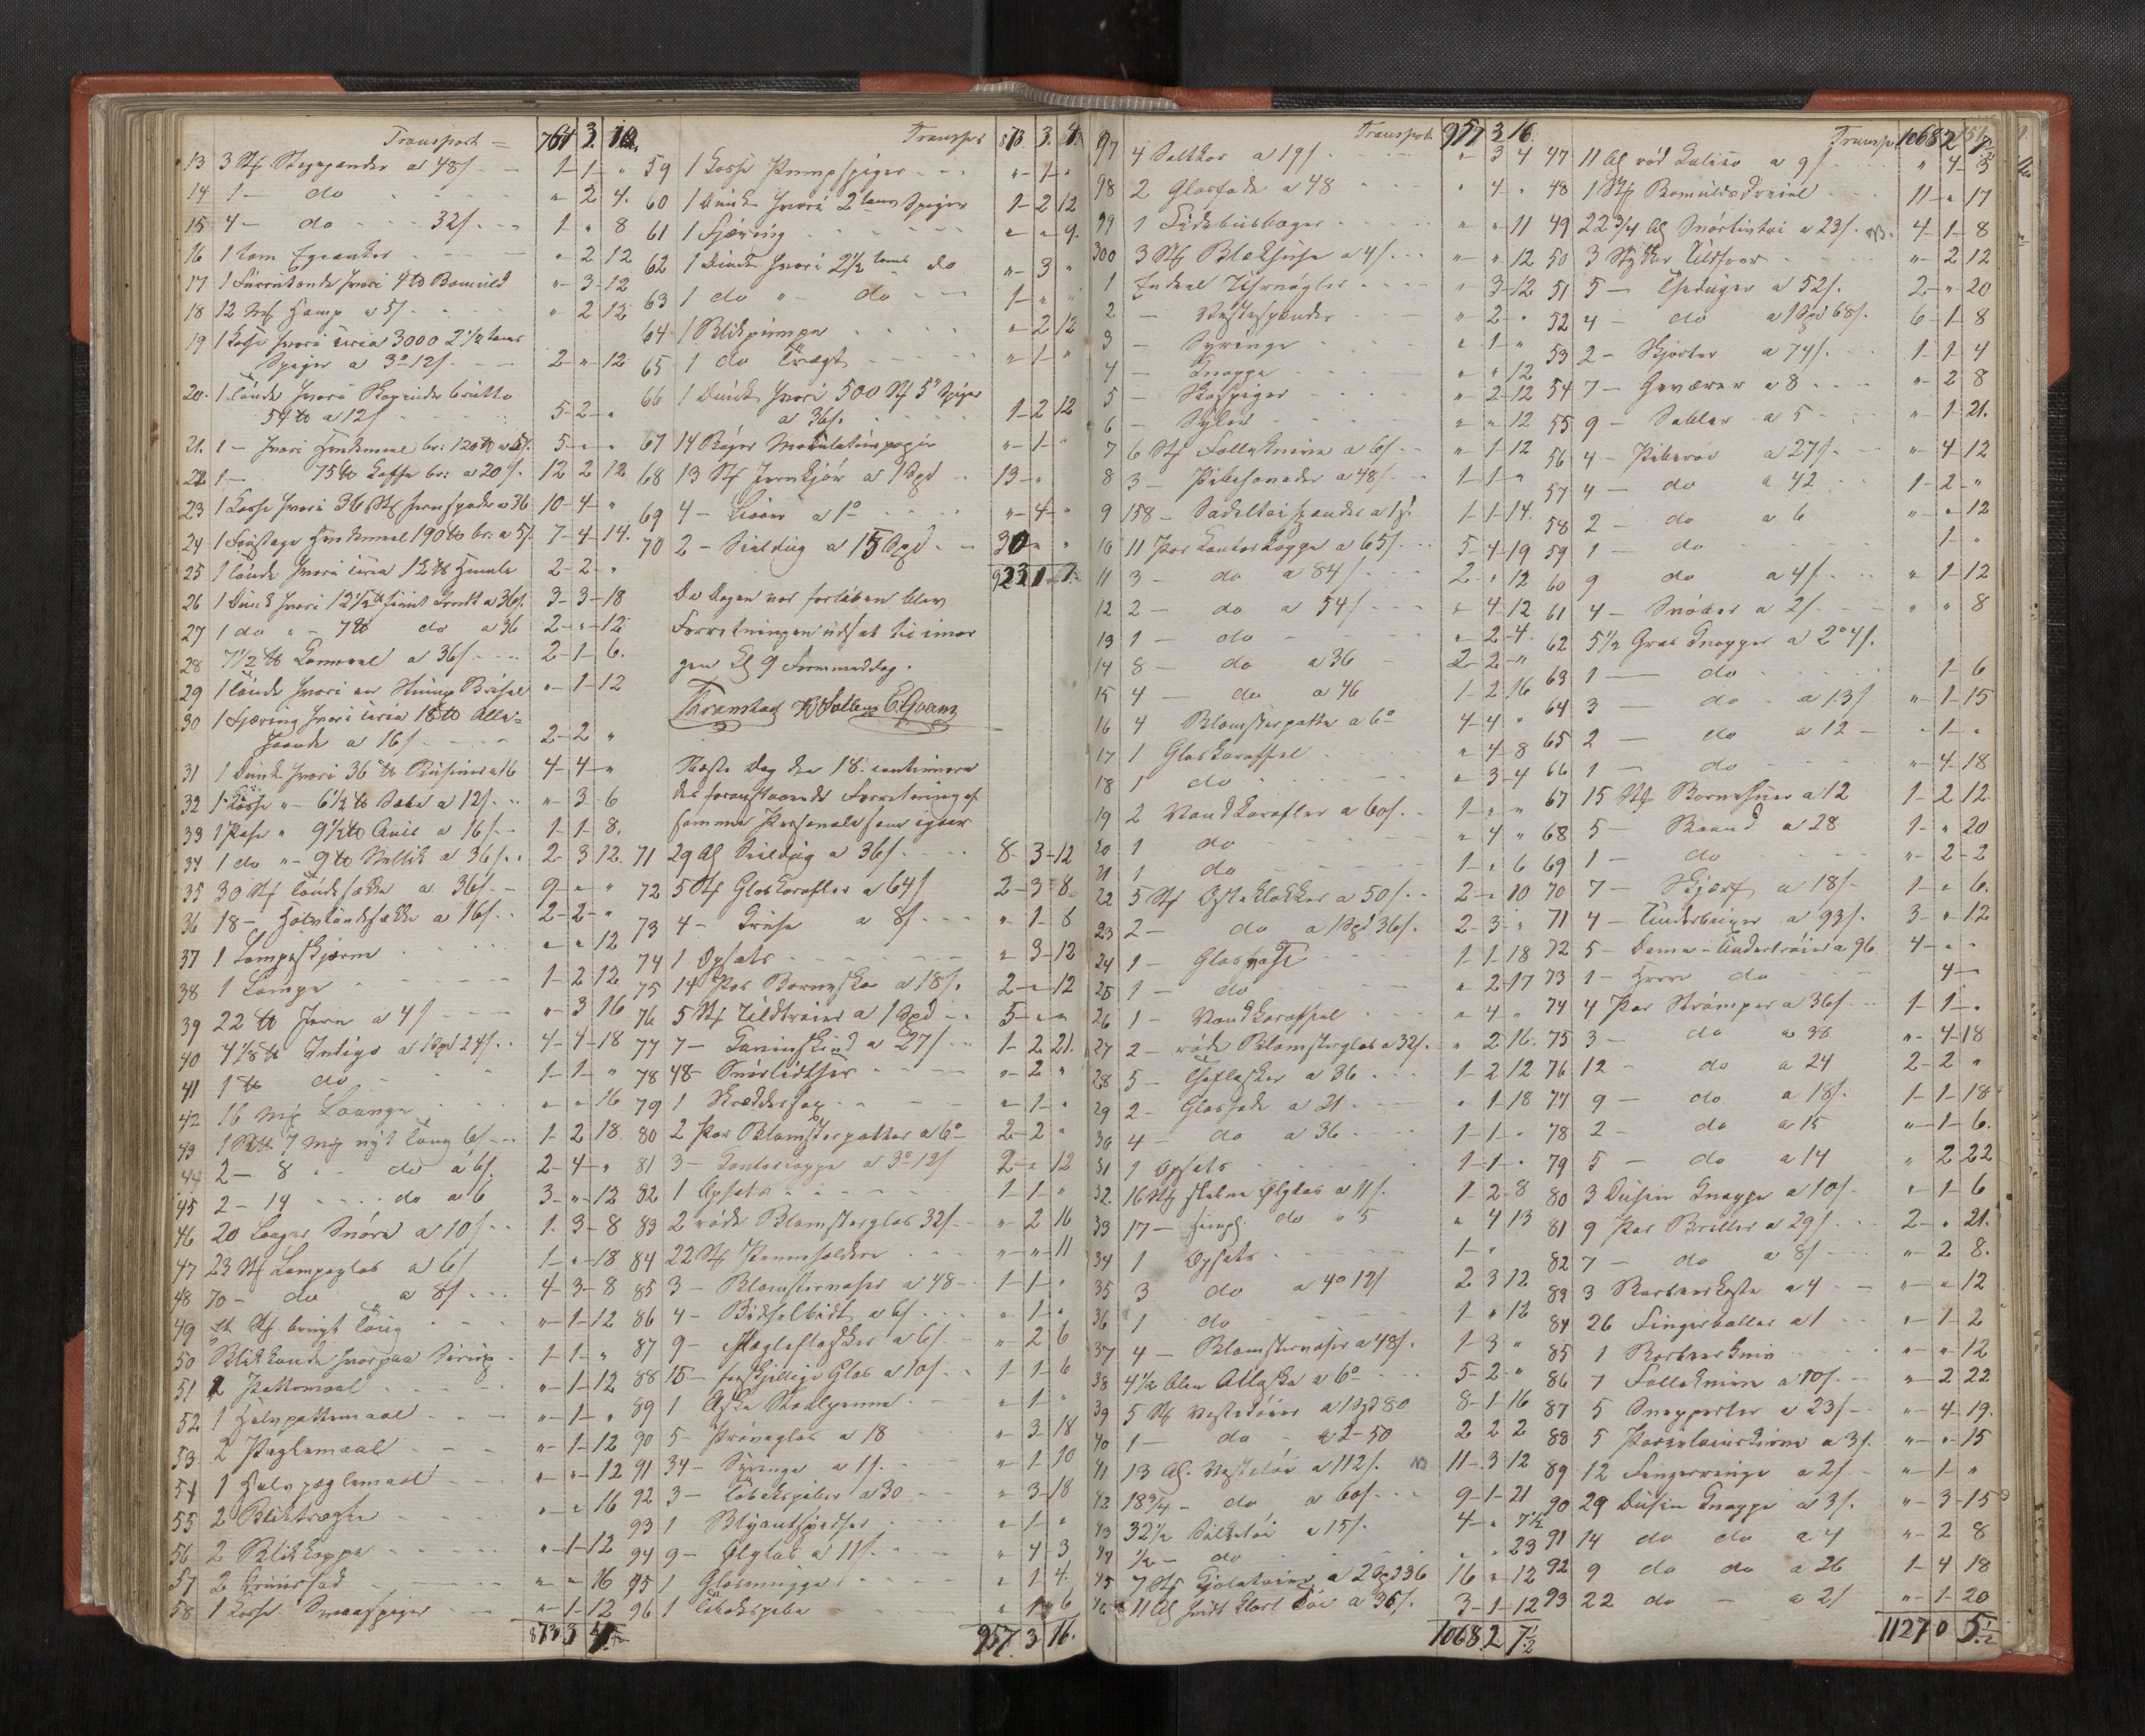 Transport = 764 3 10.
13 3 Stk do a 48/ 1- 1- "
14 1 — do " 2 4.
15 4 — do 32/. 1- " 8
16 1 " 2 12
17 1 hvori 4 ℔ Bomuld " 3- 12
18 12 Mk Hamp a 5/ " 2 12
19 1 Kasse hvori circa 3000 2 1/2 toms
Spiger a 3º 12/. 2- " 12
20. 1 Tønde hvori brutto
54 ℔ a 12/ 5- 2- "
21. 1 — hvori br: 120 ℔ a 5/. 5- " "
22 1 — 75 ℔ Kaffe br: a 20/. 12 2 12
23 1 Kasse hvori 36 Stk a 36 10- 4- "
24 1 Fustage 190 ℔ br: a 5/. 7- 4- 14.
25 1 Tønde hvori circa 12 ℔ Humle 2- 2- "
26 1 Dunk hvori 12 1/2 ℔ a 36/. 3- 3- 18
27 1 do " - 7 ℔ do a 36 2- " 12
28 7 1/2 ℔ a 36/ 2- 1- 6.
29 1 Tønde hvori en " 1- 12
30 1 Fjæring hvori circa 18 ℔ Alle=
haande a 16/. 2- 2 "
31 1 Dunk hvori 36 ℔ a 16 4- 4- "
32 1 Kasse " - 6 1/2 ℔ Sæbe a 12/. " 3 6
33 1 Pose " 9 1/2 ℔ a 16/ 1- 1- 8.
34 1 do " - 9 ℔ Nellik a 36/. 2- 3 12.
35 30 Stk Tøndesække a 36/. 9- " "
36 18 — Halvtøndesække a 16/. 2- 2- "
37 1 Lampeskjærm " " 12
38 1 Lampe 1- 2 12
39 22 ℔ Jern a 4/ " 3 16
40 4 1/8 ℔ Indigo a 1 Spd 24/. 4- 4- 18
41 1 ℔ do 1- 1- "
42 16 Mk " " 16
43 1 7 Mk nyt Toug 6/ 1- 2 18
44 2 — 8 " do á 6/ 2- 4- "
45 2 — 14 do a 6 3- " 12
46 20 Snøre a 10/ 1. 3- 8
47 23 Stk Lampeglas a 6/ 1- " 18
48 70 — do a 8/ 4- 3- 8
49 Stk brugt Toug " 1- 12
50 Blikkande hvorpaa Sirup 1- 1- "
51 2 Pottemaal " 1- 12
52 1 Halvpottemaal " 1- "
53 2 Pæglemaal " 1- 12
54 1 Halvpæglemaal " " 12
55 2 Bliktragter " " 16
56 2 Blikkopper " 1- 12
57 2 " " 16
58 1 Kasse Smaaspiger " 1- 12
873 3 4.
Transport 873. 3. 4.
59 1 Kasse Pumpspiger " 1- "
60 1 Dunk hvori 2 toms Spiger 1- 2 12
61 1 Fjæring " " 9.
62 1 Dunk hvori 2 1/2 toms do " 3 "
63 1 do " - do 1- " "
64 1 Blikpumpe " 2 12
65 1 do Tragt " 1- "
66 1 Dunk hvori 500 Stk 5" Spiger
a 36/. 1- 2 12
67 14 Bøger Makulaturpapir " 1- "
68 13 Stk a 1 Spd 13- "
69 4 — Liaaer a 1º " 4- "
70 2 — Seildug a 15 Spd 30 " "
923 1 7.
Da Dagen var forløben blev
Forretningen udsat til imor
gen Kl 9 Formiddag.
Næste Dag den 18. continuere
det foranstaaende Forretning af
samme Personale som igaar
71 29 Al Seildug a 36/ 8- 3- 12
72 5 Stk Glaskarafler a 64/ 2- 3- 8
73 4 — a 8/ " 1- 8
74 1 Opsats " 3- 12
75 14 Par Børnesko a 18/. 2- " 12
76 5 Stk Uldtrøier a 1 Spd 5- " "
77 7 — Kaninskind a 27/ 1- 2 21.
78 48 — Snørlidtser " 2 "
79 1 Skræddersax " 1- "
80 2 Par Blomsterpotter a 6º 2- 2 "
81 3 — a 3º 12/ 2- " 12
82 1 Opsats 1- 1- "
83 2 røde Blomsterglas 32/ " 2 16
84 22 Stk Penneholdere " " 11
85 3 — Blomstervaser a 48 1- 1- "
86 4 — a 6/ " 1- "
87 9 — Pægleflasker a 6/ " 2 6
88 15 — forskjellige Glas a 10/ 1- 1- 6
89 1 Æske Staalpenne " 1- "
90 5 — Prøveglas a 18 " 3 18
91 34 — Syringe a 1/. " 1- 10
92 3 — Tobakspiber a 30 " 3- 18
93 1 Blyantspidser " 1- "
94 9 — Ølglas a 11/. " 4 3
95 1 Glasmugge " 1 4.
96 1 Tobakspibe " 1 6
957. 3 16.
Transport 957 3 16.
97 4 Saltkar a 19/ " 3 4
98 2 Glasfade a 48 " 4- "
99 1 Fidibusbæger " " 11
300 3 Stk Blækhuse a 4/ " " 12
1 Endeel Uhrnøgler " 3- 12
2 — Vestespænder " 2- "
3 — Syringe " 1- "
4 — Knapper " " 12
5 — Skospiger " 2- 12
6 — Syler " " 12
7 6 Stk Follekniver a 6/ " 1- 12
8 3 — Pibehoveder a 48/ 1- 1- "
9 158 — Sadeltøispænder a 1/. 1- 1- 14.
10 11 Par a 65/. 5- 4- 19
11 3 — do a 84/ 2- " 12
12 2 — do a 54/ " 4- 12
13 1 — do " 2- 4.
14 8 — do a 36 2- 2- "
15 4 — do a 46 1- 2 16
16 4 Blomsterpotter a 6º 4- 4 "
17 1 Glaskaraffel " 4- 8
18 1 do " 3- 4
19 2 Vandkarafler a 60/. 1- " "
20 1 do " 4 "
21 1 do 1- " 6
22 5 Stk Osteklokker a 50/. 2- " 10
23 2 — do a 1 Spd 36/. 2- 3 "
24 1 — Glasvase 1- 1- 18
25 1 — do " 2- 17
26 1 — Vandkaraffel " 4- "
27 2 — røde Blomsterglas a 32/. " 2 16.
28 5 — Theflasker a 36 1- 2 12
29 2 — Glasfade a 21 " 1- 18
30 4 — do a 36 1- 1- "
31 1 Opsats 1- 1- "
32. 16 Stk Ølglas a 11/. 1- 2- 8
33 17 — simpl. do " 5 " 4 13
34 1 Opsats 1- "
35 3 do a 4º 12/ 2 3 12
36 1 do 1- " 12
37 4 — Blomstervaser a 48/. 1- 3 "
38 4 1/2 Alen Atlaske a 6º 5- 2- "
39 5 Stk Vestetøier a 1 Spd 80 8- 1- 16
40 1 — do a 2- 50 2 2 2
41 13 Al. Vestetøi a 112/. NB 11- 3 12
42 18 3/4 — do a 60/ 9- 1- 21
43 32 1/2 Silketøi a 15/. 4- " 7 1/2
44 1/2 — do " " 23
45 7 Stk Kjoletøier a 2 Spd 36 16 " 12
46 11 Al Sort Tøi a 36/. 3- 1- 12
1068. 2 7 1/2
Transp. 1068 2 7 1/2
47 11 Al rød a 9/ " 4- 3
48 1 Stk Bomuldsdreiel 11- " 17
49 22 3/4 Al a 23/. NB. 4- 1- 8
50 3 Stykker " 2 12
51 5 — a 52/. 2- " 20
52 4 — do a 1 Spd 68/. 6- 1- 8
53 2 — Skjorter a 74/. 1- 1- 4
54 7 — Geværer a 8 " 2 8
55 9 — Sabler a 5 " 1- 21.
56 4 — Piberør a 27/. " 4- 12
57 4 — do a 42 1- 2- "
58 2 — do a 6 " " 12
59 1 — do 1- "
60 9 do a 4/. " 1- 12
61 4 — Snører a 2/ " " 8
62 5 1/2 Gros Knapper a 2º 4/.
63 1 — do 1- 6
64 3 — do a 13/ " 1- 15
65 2 — do a 12 " 1- "
66 1 — do " 4- 18
67 15 Stk Børnehuer a 12 1- 2 12.
68 5 — Baand a 28 1- " 20
69 1 — do " 2- 2
70 7 — Skjærf a 18/ 1- " 6.
71 4 — Underbuxer a 93/. 3- " 12
72 5 — Dame-Undertrøier a 96 4- " "
73 1 — Herre do 4-
74 4 Par Strømper a 36/ 1- 1- "
75 3 — do a 38 " 4- 18
76 12 — do a 24 2- 2 "
77 9 — do a 18/. 1- 1- 18
78 2 — do a 15 " 1- 6.
79 5 — do a 14 " 2 22
80 3 Dusin Knapper a 10/ " 1- 6
81 9 Par Briller a 29/. 2- " 21.
82 7 — do a 8/ " 2 8.
83 3 Barbeerkoste a 4 " " 12
84 26 Fingerbøller a 1 " 1- 2
85 1 Barbeerkniv " " 12
86 7 Follekniver a 10/. " 2 22
87 5 Snepperter a 23/ " 4- 19.
88 5 a 3/. " " 15
89 12 Fingerringe a 2/ " 1- "
90 29 Dusin Knapper a 3/. " 3- 15
91 14 do do a 4 " 2 8
92 9 do do a 26 1- 4 18
93 22 do — a 2/ " 1- 20
1127 0 5 1/2